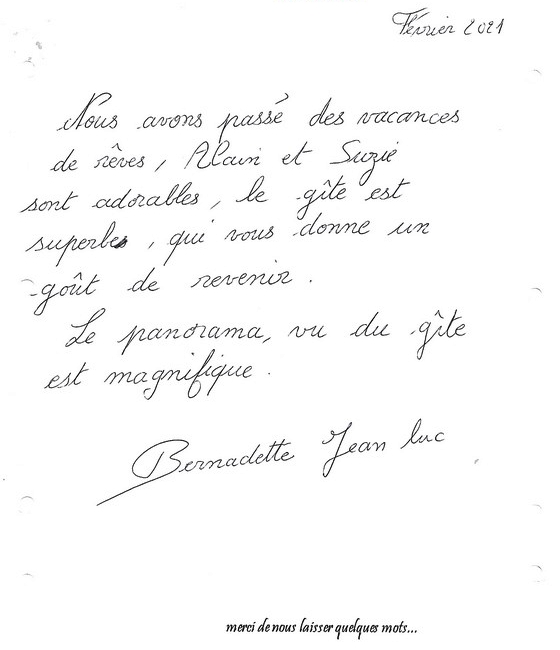 Février 2021
Nous avons passé des vacances
de rêves, Alain et Suzie
sont adorables, le gîte est
superbe, qui vous donne un
goût de revenir.
Le panorama, vu du gîte
est magnifique.
Bernadette Jean luc
merci de nous laisser quelques mots...